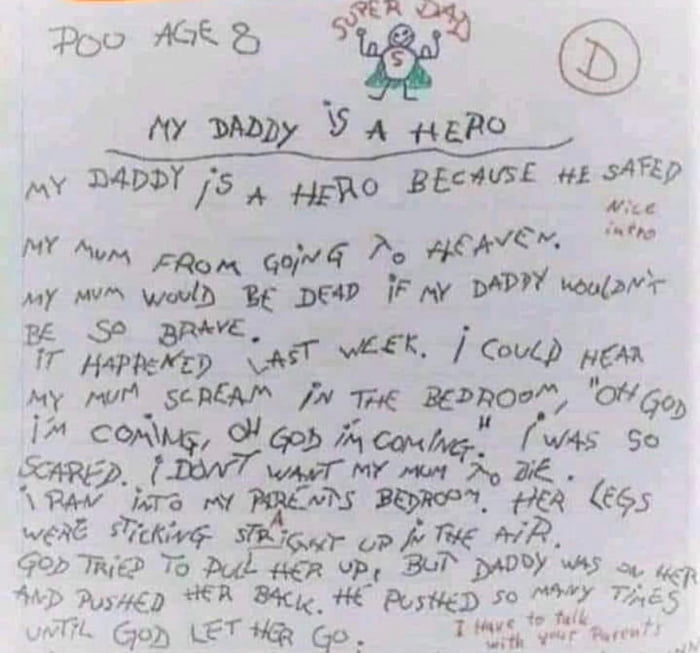 SUPER DAD
POO AGE 8
S
D
MY DADDY iS A HERO
MY DADDY iS A HERO BECAUSE HE SAFED
Nice
intro
MY MUM FROM GOiNG TO HEAVEN.
MY MUM WOULD BE DEAD iF MY DADDY WOULDN'T
BE SO BRAVE.
iT HAPPENED LAST WEEK. i COULD HEAR
MY MUM SCREAM iN THE BEDROOM, "OH GOD
i'M COMiNG, OH GOD iM COMiNG." i WAS SO
SCARED. i DON'T WANT MY MUM TO DiE.
i RAN iNTO MY PARENTS BEDROOM. HER LEGS
WERE STiCKiNG STRAiGHT UP iN THE AiR.
GOD TRiED TO PULL HER UP, BUT DADDY WAS ON HER
AND PUSHED HER BACK. HE PUSHED SO MANY TiMES
UNTiL GOD LET HER GO.
I Have to talk
with your Parents